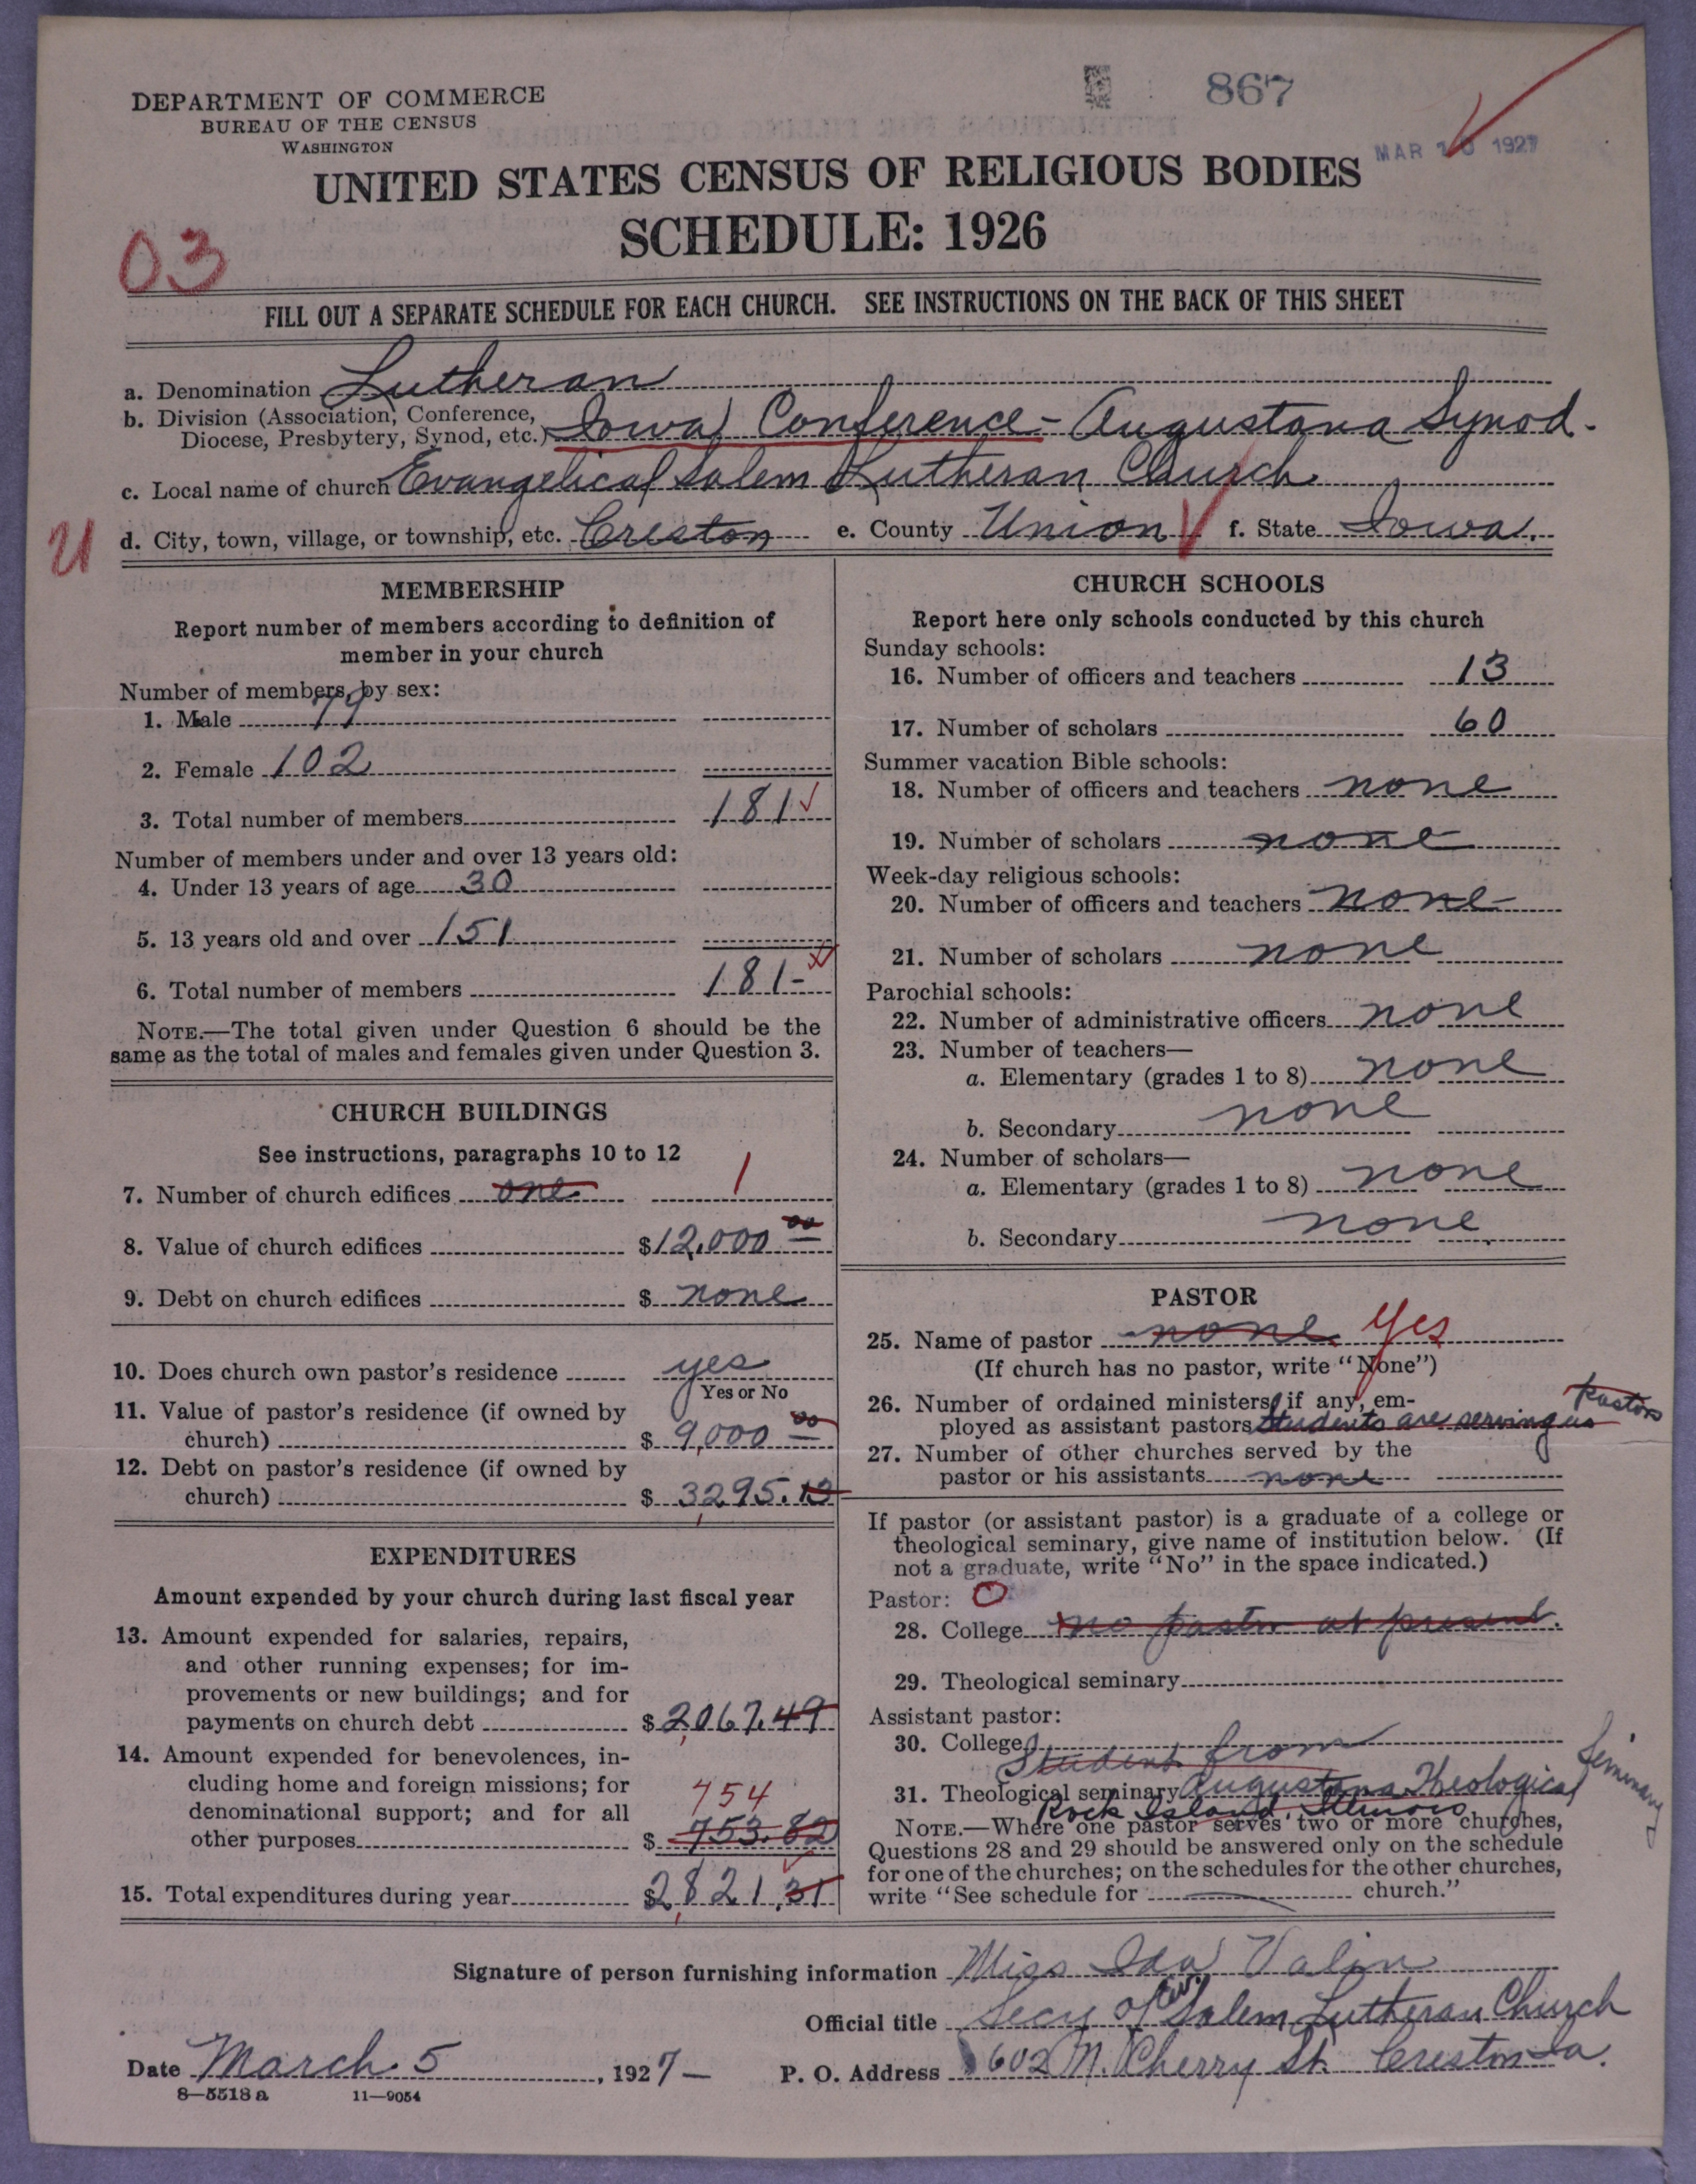 867
MAR 1927
DEPARTMENT OF COMMERCE
BUREAU OF THE CENSUS
WASHINGTON
UNITED STATES CENSUS OF RELIGIOUS BODIES
SCHEDULE: 1926
03
FILL OUT A SEPARATE SCHEDULE FOR EACH CHURCH. SEE INSTRUCTIONS ON THE BACK OF THIS SHEET
a. Denomination Lutheran
b. Division (Association, Conference,
Diocese, Presbytery, Synod, etc.) Iowa Conference - Augustana Synod.
c. Local name of church Evangelical Salem Lutheran Church
d. City, town, village, or township, etc. Creston e. County Union f. State Iowa.
MEMBERSHIP
Report number of members according to definition of
member in your church
Number of members, by sex:
1. Male 79
2. Female 102
3. Total number of members 181
Number of members under and over 13 years old:
4. Under 13 years of age 30
5. 13 years old and over 151
6. Total number of members 181-
NOTE.—The total given under Question 6 should be the
same as the total of males and females given under Question 3.
CHURCH BUILDINGS
See instructions, paragraphs 10 to 12
7. Number of church edifices one 1
8. Value of church edifices $12,000 00
9. Debt on church edifices $ none
10. Does church own pastor's residence yes
Yes or No
11. Value of pastor's residence (if owned by
church) $ 9,000 00
12. Debt on pastor's residence (if owned by
church) $ 3295.13
EXPENDITURES
Amount expended by your church during last fiscal year
13. Amount expended for salaries, repairs,
and other running expenses; for im-
provements or new buildings; and for
payments on church debt $2,067.49
14. Amount expended for benevolences, in-
cluding home and foreign missions; for
denominational support; and for all 754
other purposes $ 753.82
15. Total expenditures during year $2,821.31
CHURCH SCHOOLS
Report here only schools conducted by this church
Sunday schools:
16. Number of officers and teachers 13
17. Number of scholars 60
Summer vacation Bible schools:
18. Number of officers and teachers none
19. Number of scholars none
Week-day religious schools:
20. Number of officers and teachers none
21. Number of scholars none
Parochial schools:
22. Number of administrative officers none
23. Number of teachers—
a. Elementary (grades 1 to 8) none
b. Secondary none
24. Number of scholars—
a. Elementary (grades 1 to 8) none
b. Secondary none
PASTOR
25. Name of pastor none Yes
(If church has no pastor, write "None")
26. Number of ordained ministers, if any, em-
ployed as assistant pastors Students are serving as Pastors
27. Number of other churches served by the
pastor or his assistants none
If pastor (or assistant pastor) is a graduate of a college or
theological seminary, give name of institution below. (If
not a graduate, write "No" in the space indicated.)
Pastor: O
28. College no pastor at present.
29. Theological seminary
Assistant pastor:
30. College
Student from
31. Theological seminary Augustana Theological Seminary
Rock Island, Illinois
NOTE.—Where one pastor serves two or more churches,
Questions 28 and 29 should be answered only on the schedule
for one of the churches; on the schedules for the other churches,
write "See schedule for church."
Signature of person furnishing information Miss Ida Valin
Official title Secy of Salem Lutheran Church
Date March 5, 1927 - P. O. Address 602 N. Cherry St. Creston Ia.
8—5518 a 11—9054